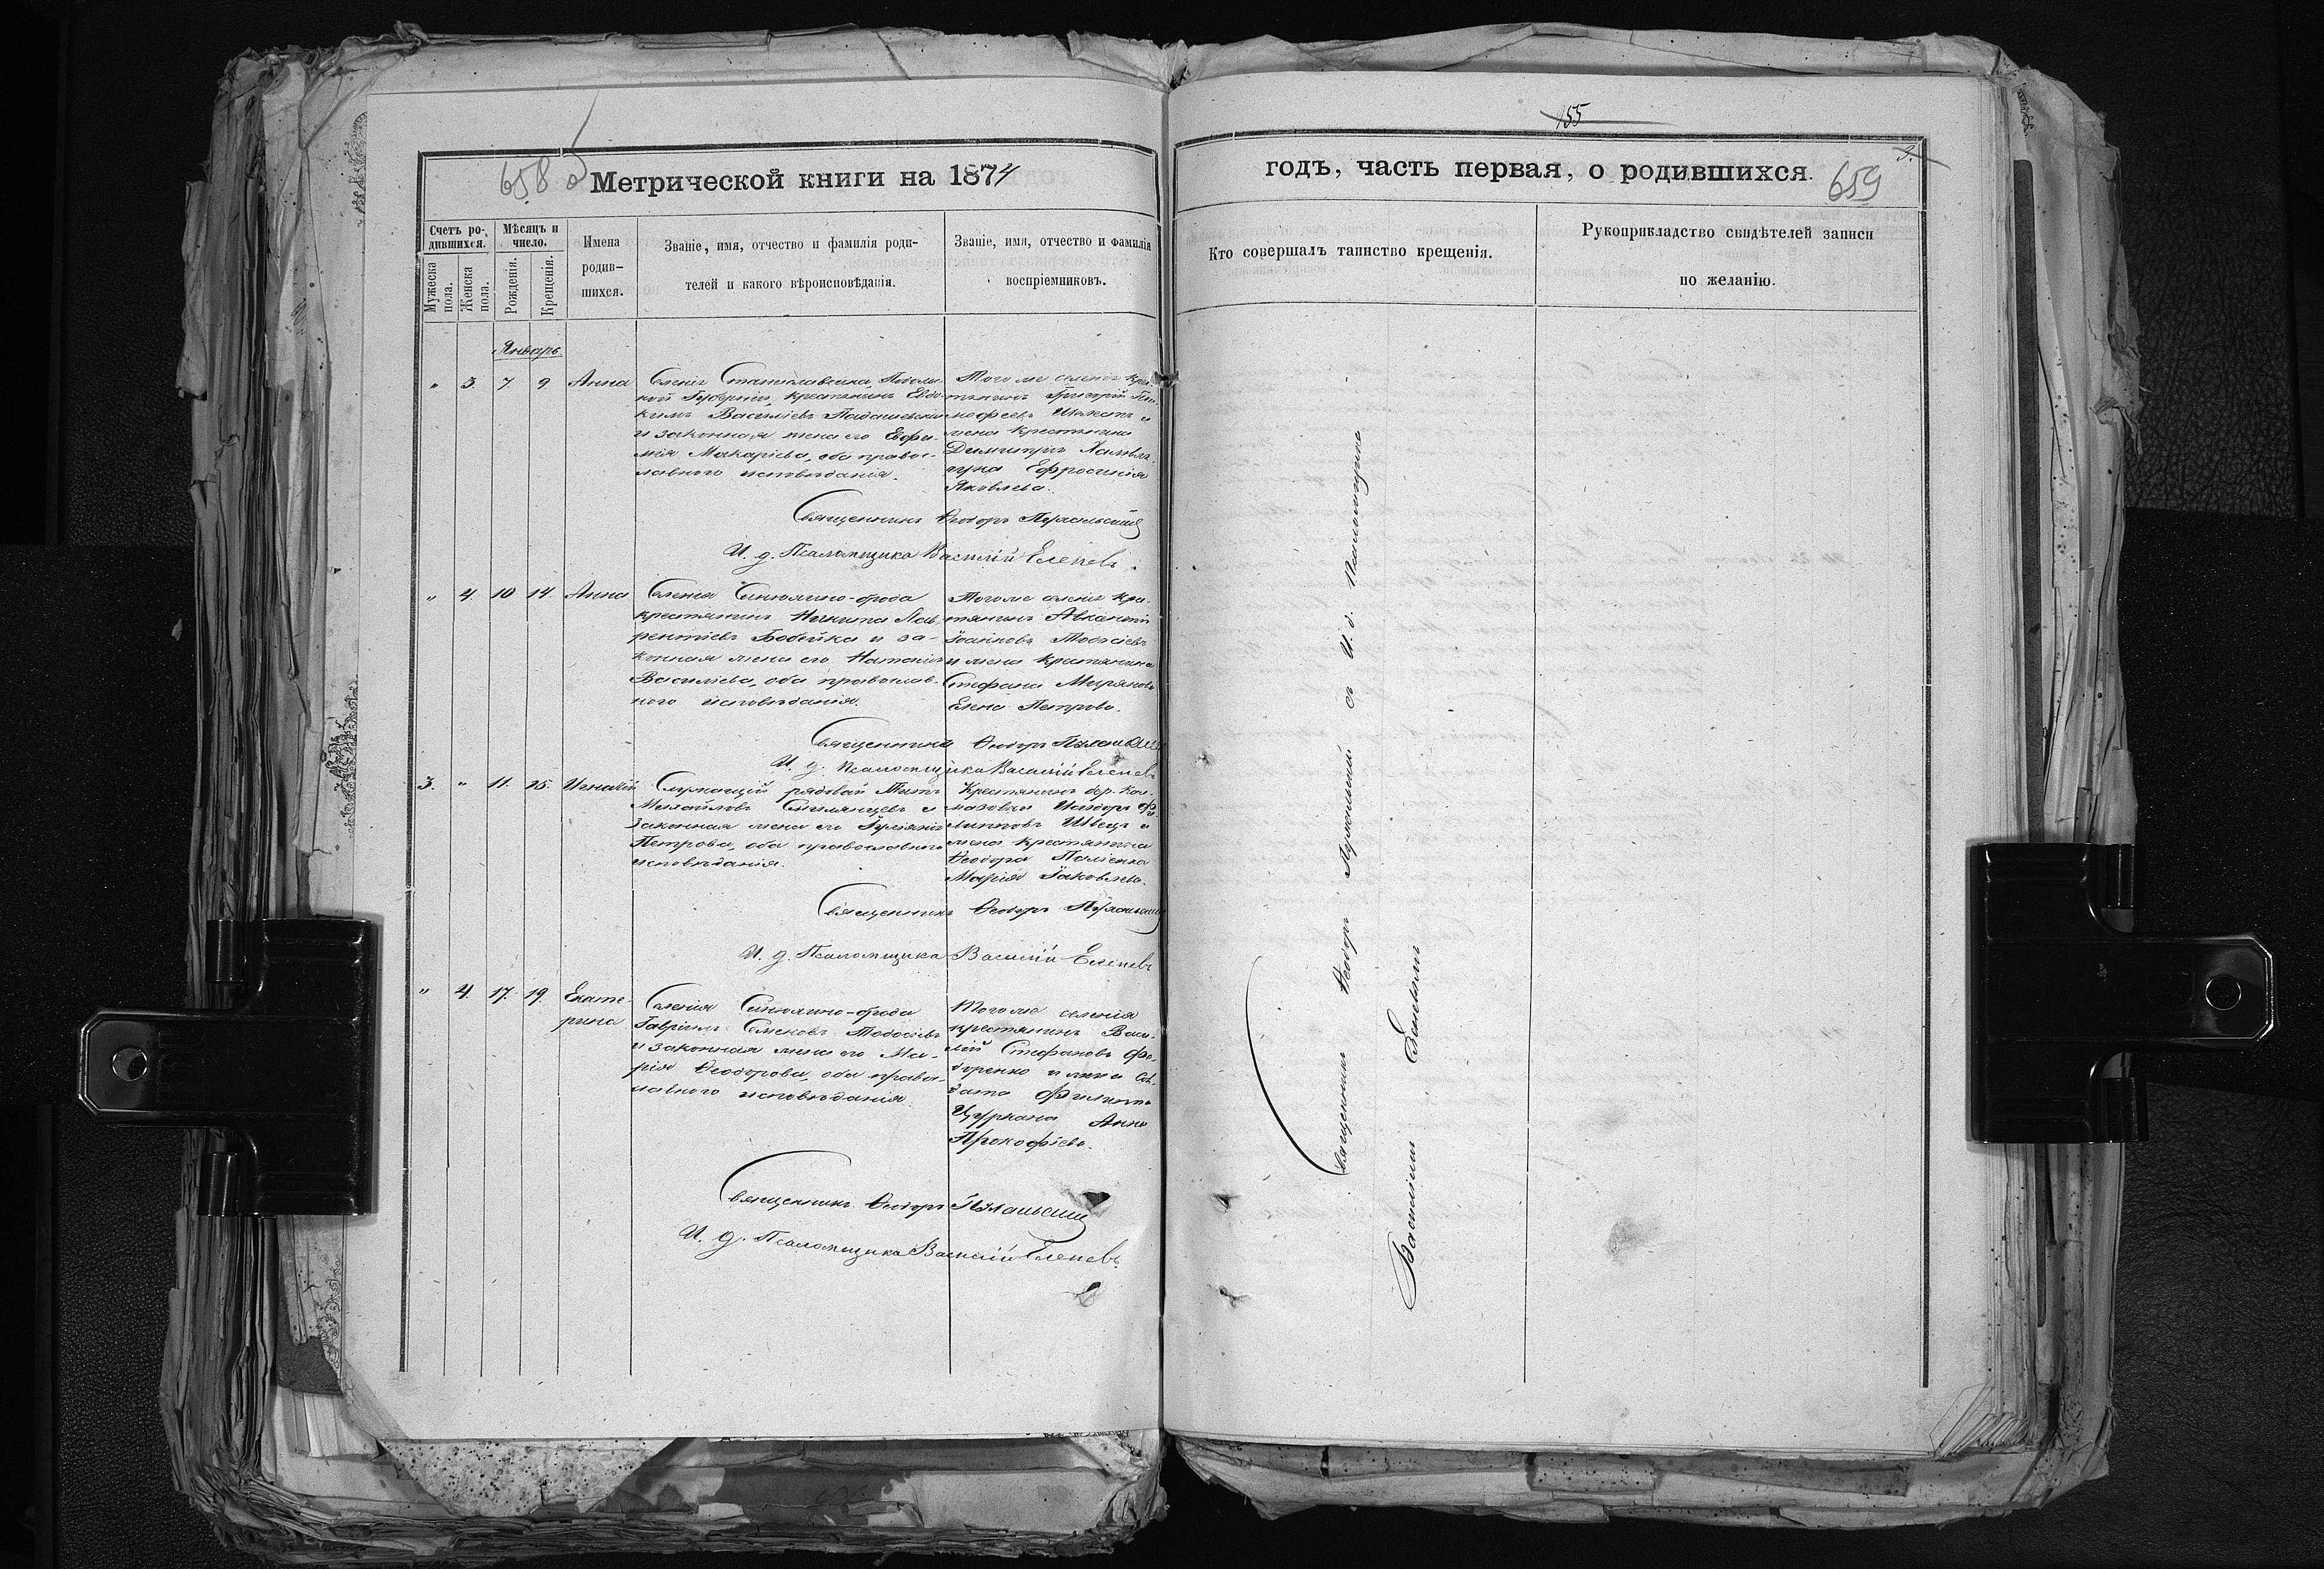 658 об
Метрической книги на 1874
Счетъ ро-
дившихся.
Мужеска пола.
Женска пола.
Мѣсяцъ и
число.
Рожденія.
Крещенія.
Имена
родив-
шихся.
Званіе, имя, отчество и фамилія роди-
телей и какого вѣроисповѣданія.
Званіе, имя, отчество и фамилія
воспріемниковъ.
Январь
" 3. 7. 9 Анна
Селенія Станиславчика, Подоль-
ской Губерніи, крестьянинъ Евдо-
кимъ Васильевъ
и законная жена его Евфи-
мія Макаріева, оба правос-
лавного исповѣданія.
Того же селенія кре-
тьянинъ Григорій Ти-
мофеевъ и
жена крестьянина
Димитрія
Ефросинія
Яковлева.
Священникъ Ѳеодоръ
И. д. Псаломщика Василій
" 4. 10 14. Анна
Селенія
крестьянинъ Никита Лав-
рентіевъ Бобейко и за-
конная жена его Наталія
Василіева, оба православ-
ного исповѣданія.
Того же селенія кре-
тьянинъ
Іоанновъ
и жена крестьянина
Стефана
Елена Петрова.
Священникъ Ѳеодоръ
И. д. Псаломщика Василій
3. " 11. 15. Игнатій
Служащій рядовой Титъ
Михайловъ и
законная жена его
Петрова, оба православного
исповѣданія.
Крестьянинъ дер.
Исидоръ Фи-
липповъ Швецъ и
жена крестьянина
Ѳеодора
Марія Іаковлева.
Священникъ Ѳеодоръ
И. д. Псаломщика Василій
" 4. 17. 19. Екате-
рина
Селенія
Гавріилъ Семеновъ
и законная жена его Ма-
рія Ѳеодорова, оба право-
славного исповѣданія
Того же селенія
крестьянинъ Васи-
лій Стефановъ Фе-
доренко и жена Сол-
дата Филиппа
Цуркана Анна
Прокофіева.
Священникъ Ѳеодоръ
И. д. Псаломщика Василій
155
годъ, часть первая, о родившихся.
3.
659
Кто совершалъ таинство крещенія.
Рукоприкладство свидѣтелей записи
по желанію.
Священникъ Ѳеодоръ съ И. д. Псаломщика
Василіемъ